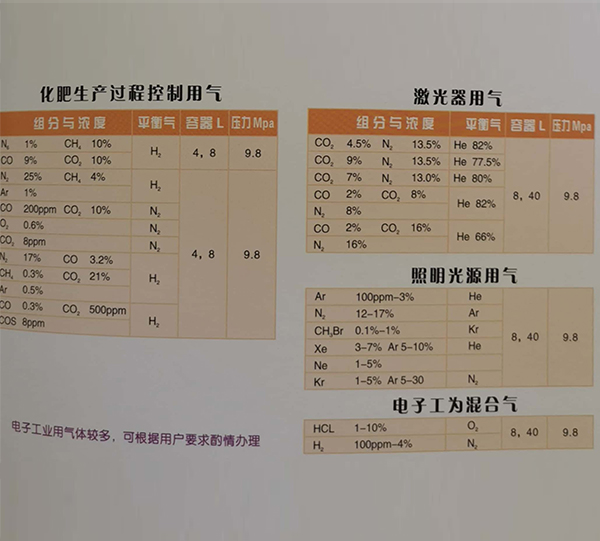 化肥生产过程控制用气
组分与浓度 平衡气 容器L 压力Mpa
N₂ 1% CH₄ 10% H₂ 4, 8 9.8
CO 9% CO₂ 10%
N₂ 25% CH₄ 4% H₂ 4, 8 9.8
Ar 1%
CO 200ppm CO₂ 10% N₂
O₂ 0.6% N₂
CO₂ 8ppm N₂
N₂ 17% CO 3.2% H₂
CH₄ 0.3% CO₂ 21%
Ar 0.5%
CO 0.3% CO₂ 500ppm H₂
COS 8ppm
电子工业用气体较多，可根据用户要求酌情办理
激光器用气
组分与浓度 平衡气 容器L 压力Mpa
CO₂ 4.5% N₂ 13.5% He 82% 8, 40 9.8
CO₂ 9% N₂ 13.5% He 77.5%
CO₂ 7% N₂ 13.0% He 80%
CO 2% CO₂ 8% He 82%
N₂ 8%
CO 2% CO₂ 16% He 66%
N₂ 16%
照明光源用气
Ar 100ppm-3% He 8, 40 9.8
N₂ 12-17% Ar
CH₃Br 0.1%-1% Kr
Xe 3-7% Ar 5-10% He
Ne 1-5%
Kr 1-5% Ar 5-30 N₂
电子工为混合气
HCL 1-10% O₂ 8, 40 9.8
H₂ 100ppm-4% N₂